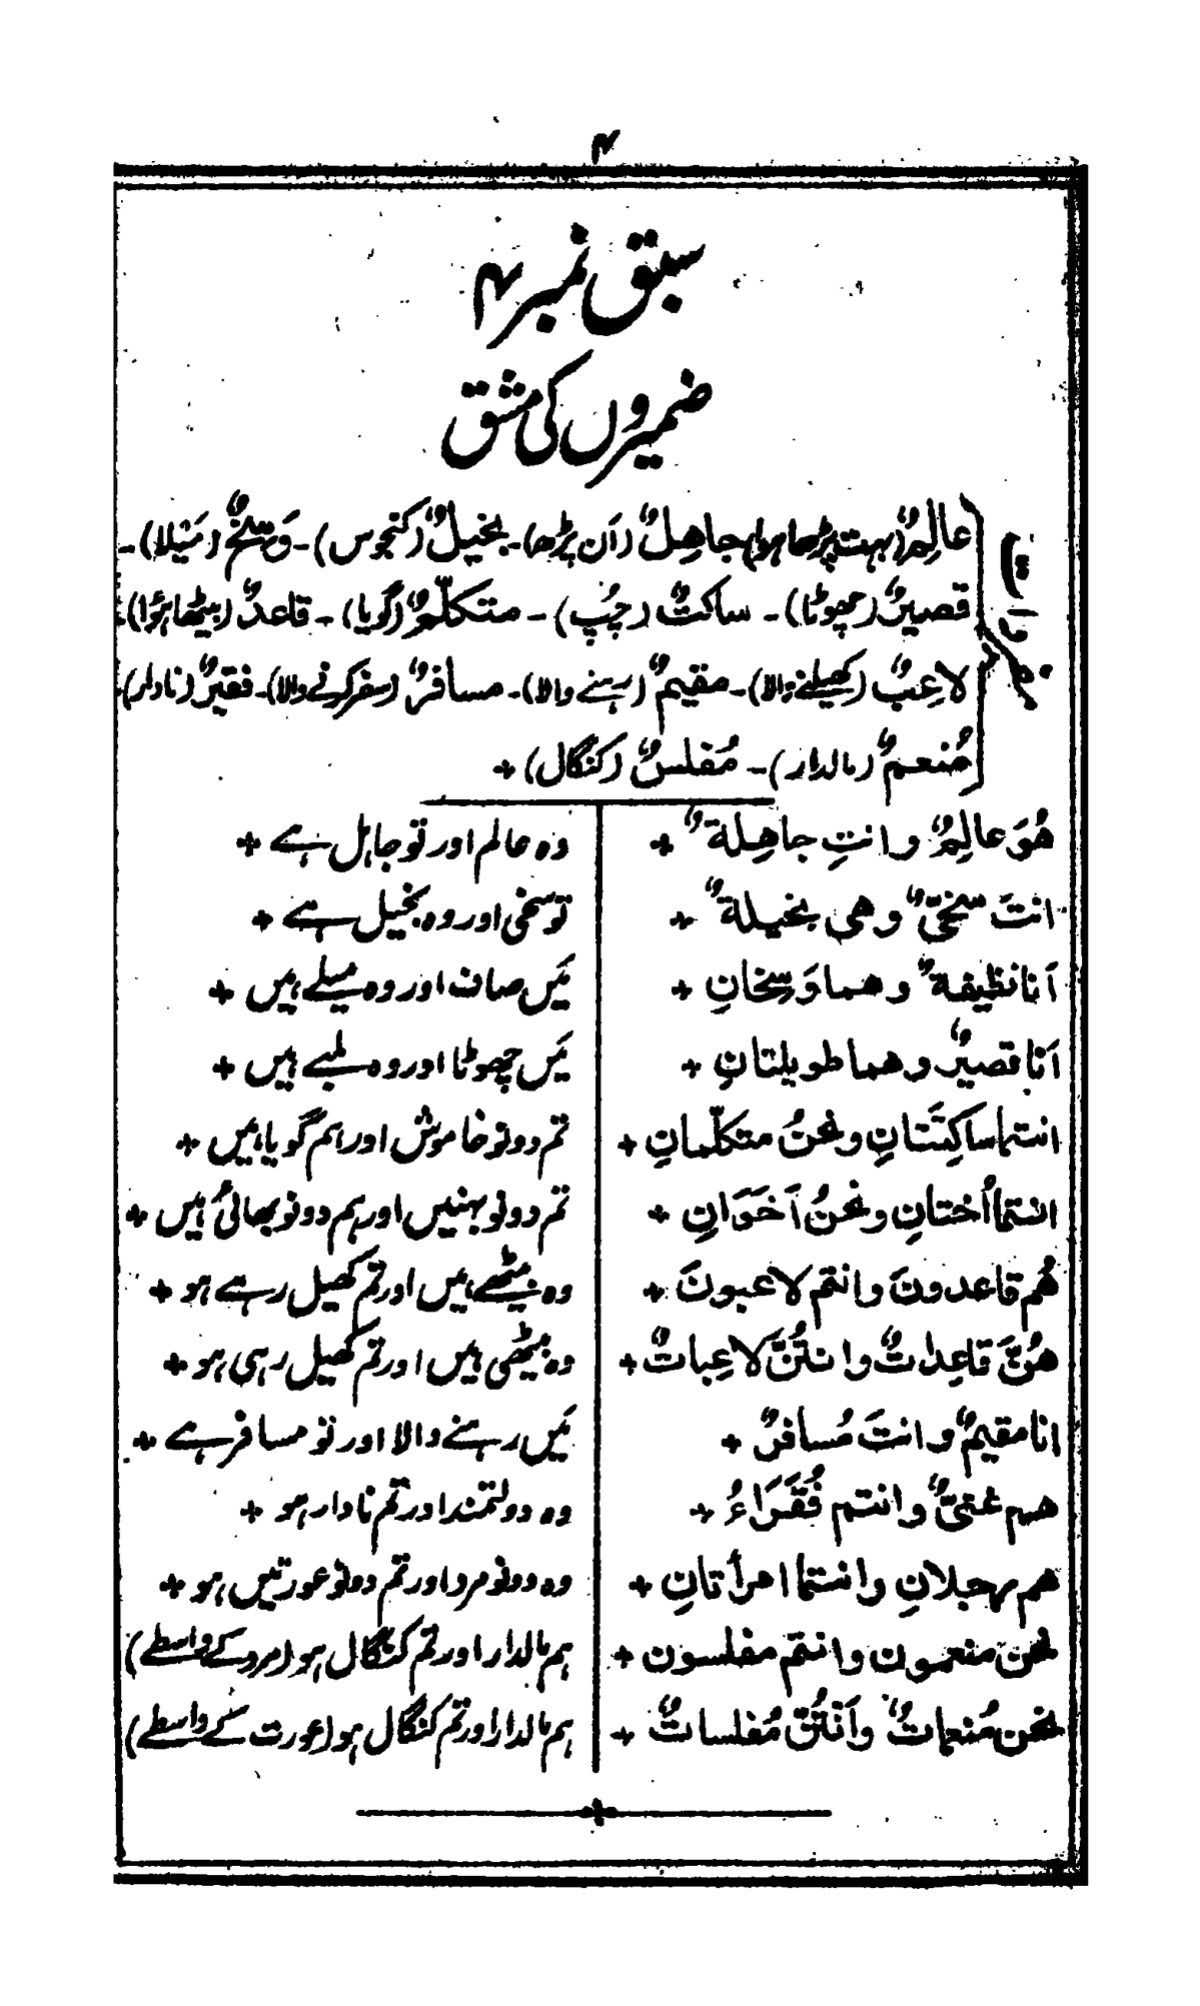 ۴
سبق نمبر ۴
ضمیروں کی مشق
عالِمٌ (بہت پڑھا ہوا) جاھِلٌ (اَن پڑھ)۔ بخیلٌ (کنجوس)۔ وَسِخٌ (مَیلا)۔
قصیرٌ (چھوٹا)۔ ساکتٌ (چُپ)۔ متکلّمٌ (گویا)۔ قاعدٌ (بیٹھا ہؤا)۔
لاعِبٌ (کھیلنے والا)۔ مقیمٌ (رہنے والا)۔ مسافرٌ (سفر کرنے والا)۔ فقیرٌ (نادار)۔
مُنعمٌ (مالدار)۔ مُفلسٌ (کنگال) +
ھُوَ عالِمٌ وانتِ جاھِلۃٌ + وہ عالم اور تو جاہل ہے +
انتَ سخیٌّ وھی بخیلۃٌ + تو سخی اور وہ بخیل ہے +
اَنا نظیفۃٌ وھما وَسِخانِ + مَیں صاف اور وہ میلے ہیں +
اَنا قصیرٌ وھما طویلتانِ + مَیں چھوٹا اور وہ لمبے ہیں +
انتما ساکِتَتانِ ونحنُ متکلّمانِ + تم دونو خاموش اور ہم گویا ہیں +
انتما اُختانِ ونحنُ اَخَوَانِ + تم دونو بہنیں اور ہم دونو بھائی ہیں +
ھُم قاعدونَ وانتم لاعبونَ + وہ بیٹھے ہیں اور تم کھیل رہے ہو +
ھُنَّ قاعِداتٌ وانتُنَّ لاعِباتٌ + وہ بیٹھی ہیں اور تم کھیل رہی ہو +
انا مقیمٌ وانتَ مُسافرٌ + مَیں رہنے والا اور تو مسافر ہے +
ھم غنیٌّ وانتم فُقَرَاءُ + وہ دولتمند اور تم نادار ہو +
ھم رجلانِ وانتما امرأتانِ + وہ دونو مرد اور تم دونو عورتیں ہو +
نحن منعمون وانتم مفلسون + ہم مالدار اور تم کنگال ہو (مرد کے واسطے)
نحن مُنعماتٌ واَنتُنّ مُفلساتٌ + ہم مالدار اور تم کنگال ہو (عورت کے واسطے)